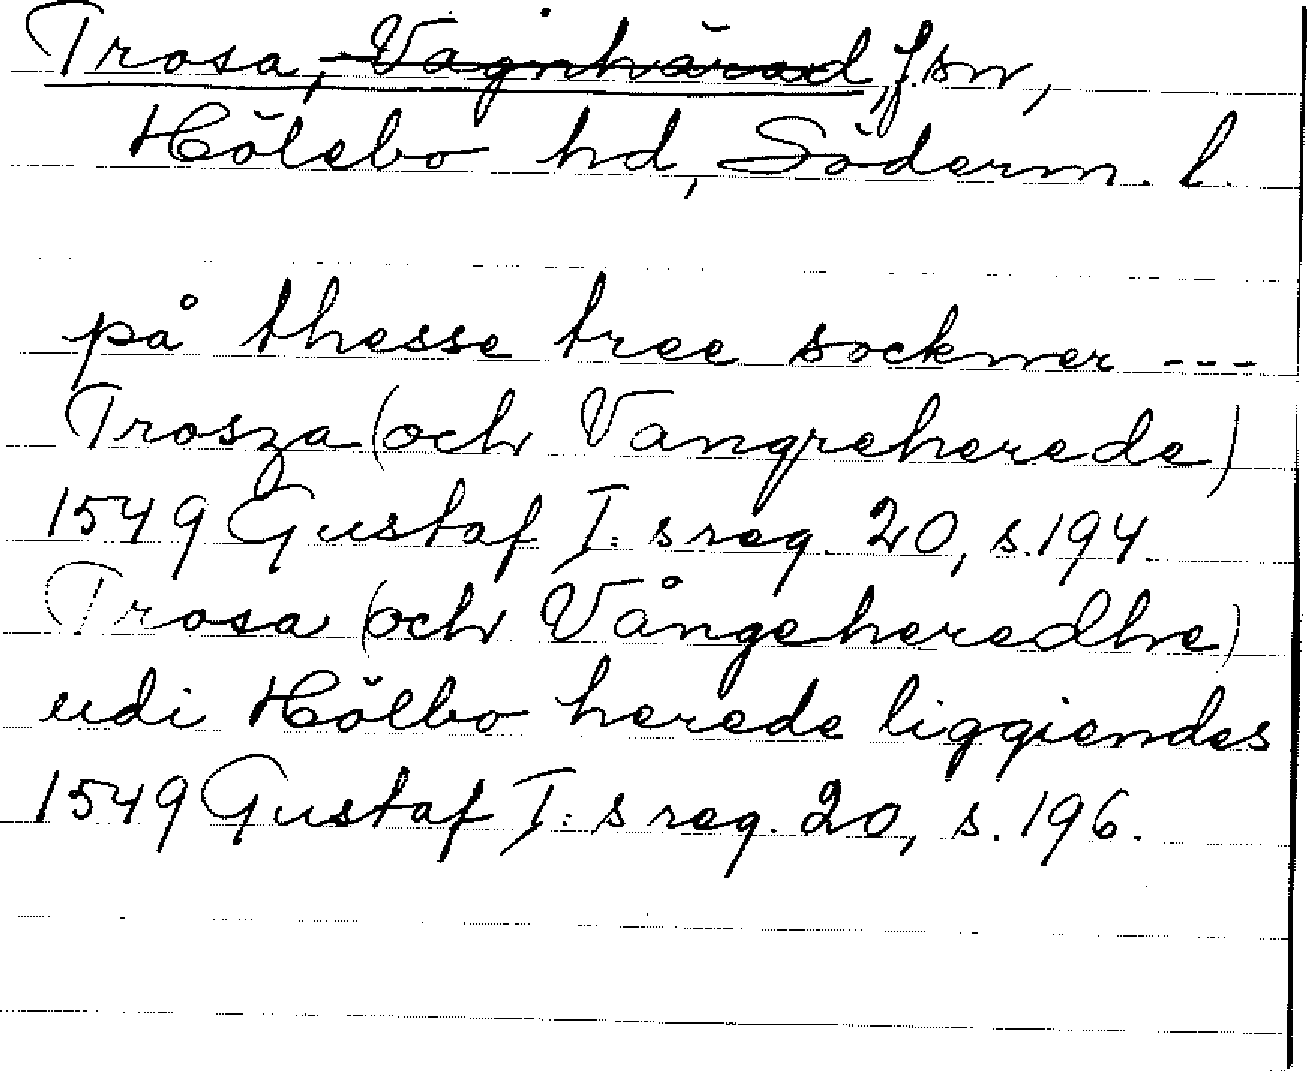 Trosa, Vagnhärad, f. sn,
Hölebo hd, Söderm. l.
på thesse tree sockner ---
Trosza (och Vangreherede)
1549 Gustaf I:s reg. 20, s. 194.
Trosa (och Vångeheredhe)
udi Hölbo herede liggiendes
1549 Gustaf I:s reg. 20, s. 196.